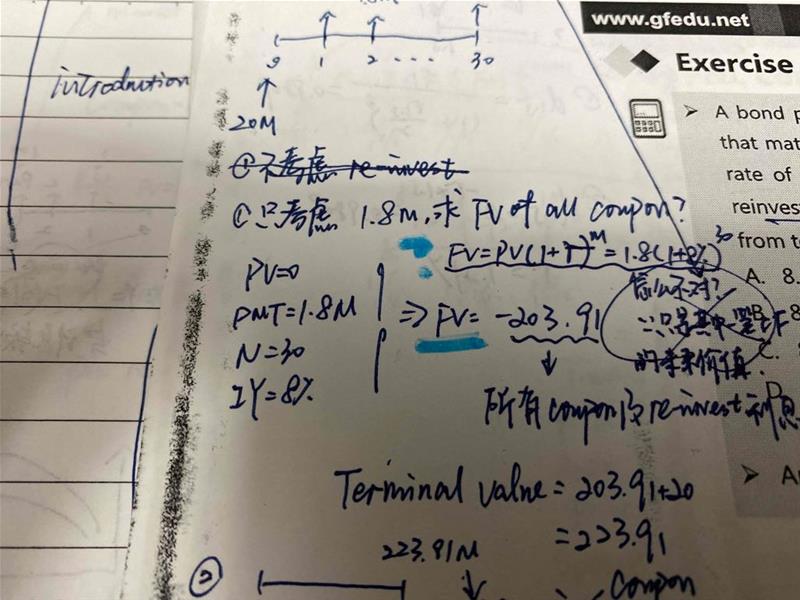 www.gfedu.net
Exercise
A bond p
that mat
rate of
reinves
from t
A. 8.
B. 8
C.
D
A
introdnotion
0 1 2 ... 30
20M
①不考虑 re-invest
①只考虑 1.8M,求 FV of all coupon?
FV=PV(1+r)^M=1.8(1+8%)^30
PV=0
PMT=1.8M
N=30
IY=8%
⇒ FV= -203.91
怎么不对?
只是其中一笔
的未来价值.
所有coupon及re-invest利息
Terminal value=203.91+20
=223.91
223.91M
②
Coupon